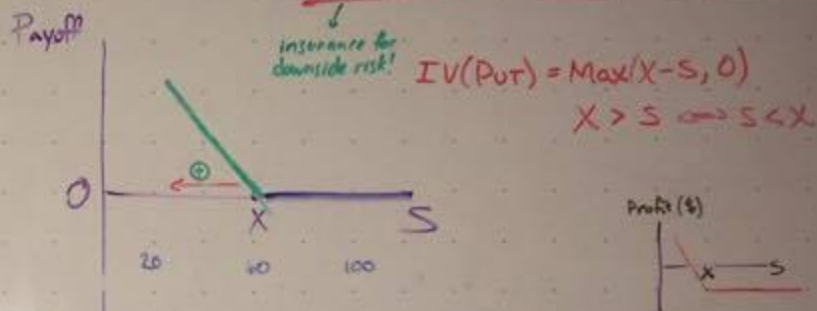 Payoff
insurance for
downside risk!
IV(PUT) = Max(X-S, 0)
X > S ⟺ S < X
+
0
X
S
20
60
100
Profit ($)
X
S